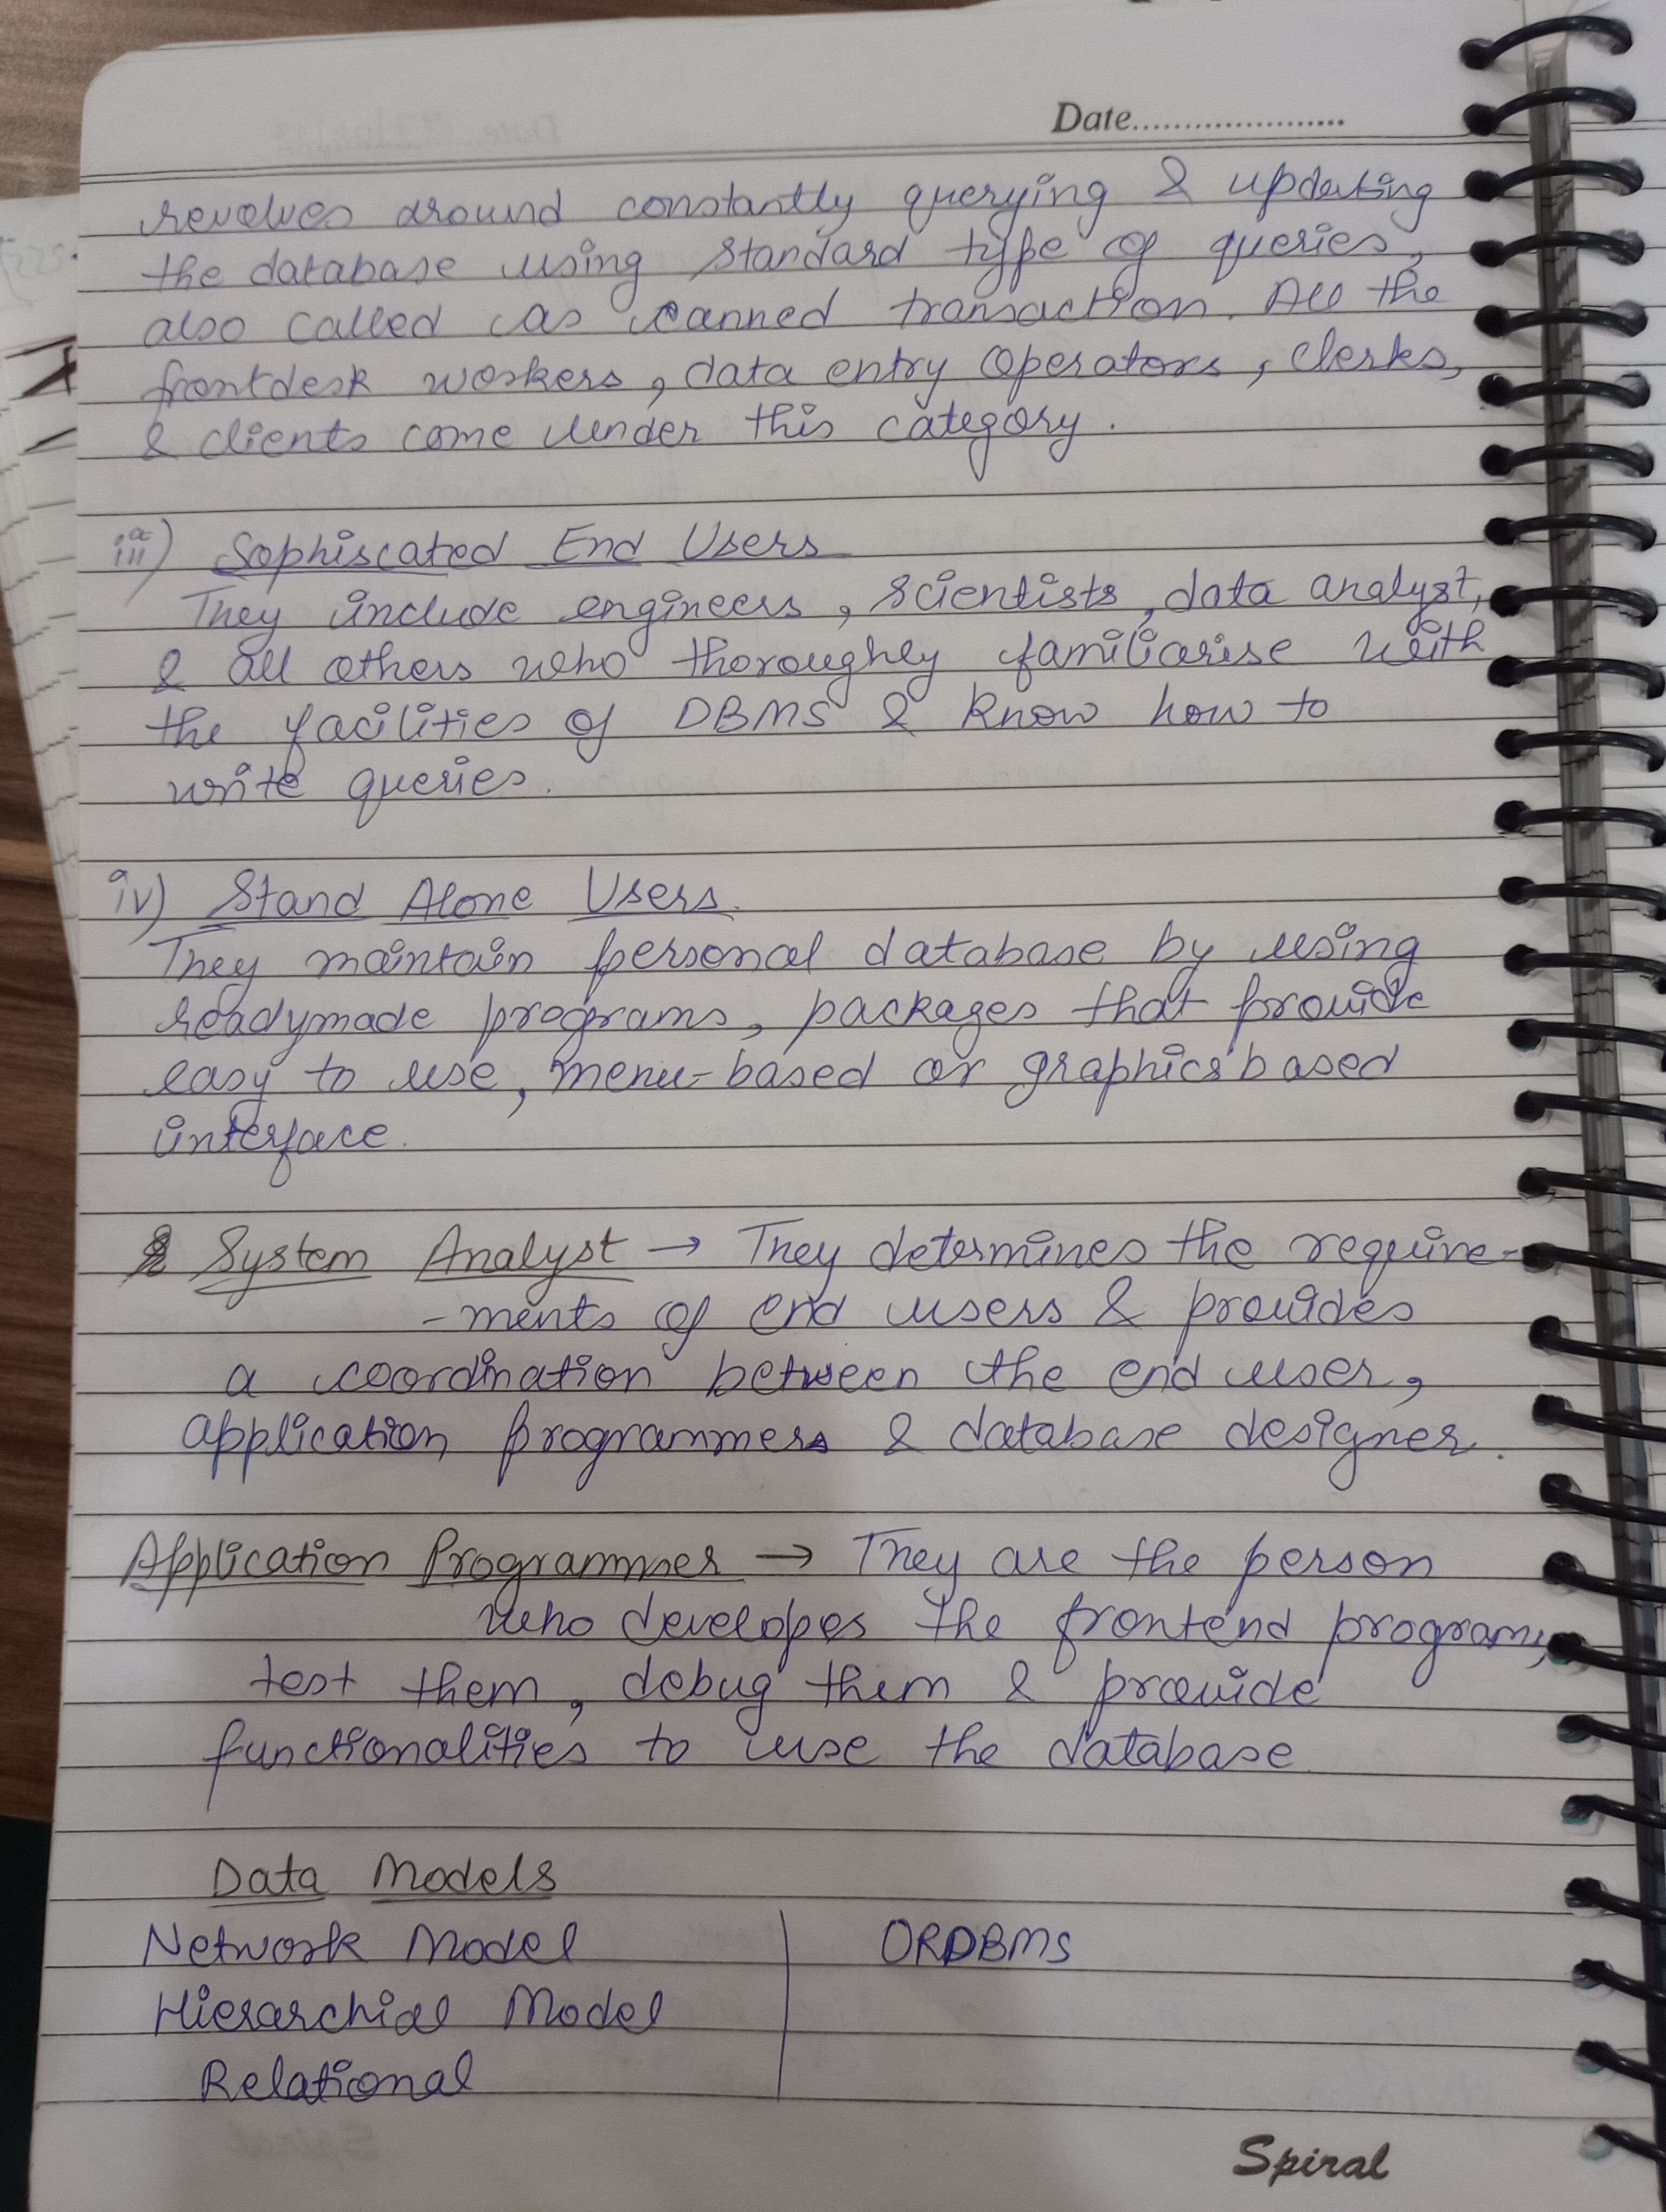 Date.....................
revolves around constantly querying & updating
the database using standard type of queries,
also called as canned transaction. All the
frontdesk workers, data entry operators, clerks,
& clients come under this category.
iii) Sophiscated End Users
They include engineers, scientists, data analyst,
& all others who thoroughly familiarise with
the facilities of DBMS & know how to
write queries.
iv) Stand Alone Users.
They maintain personal database by using
readymade programs, packages that provide
easy to use, menu-based or graphics based
interface.
System Analyst → They determines the require-
-ments of end users & provides
a coordination between the end user,
application programmers & database designer.
Application Programmer → They are the person
who developes the frontend program,
test them, debug them & provide
functionalities to use the database
Data Models
Network Model | ORDBMS
Hierarchial Model
Relational
Spiral